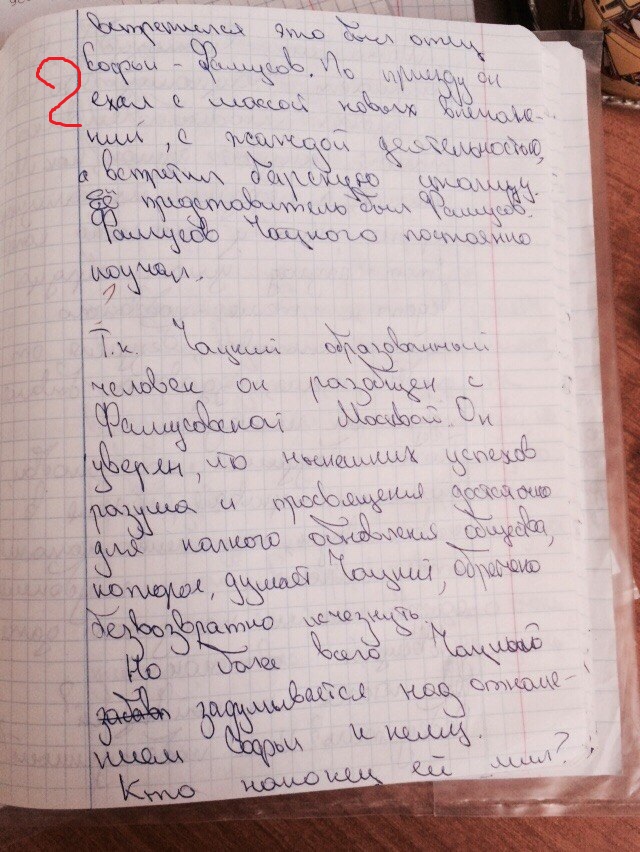 встретился это был отец
Софьи - Фамусов. По приезду он
2
ехал с массой новых впечатле-
ний, с жаждой деятельностью,
а встретил барскую
её представитель был Фамусов.
Фамусов Чацкого постоянно
поучал.
Т.к. Чацкий образованный
человек он
с
Фамусовской Москвой. Он
уверен, что нынешних успехов
разума и просвящения достаточно
для полного обновления общества,
которое, думает Чацкий, обречено
безвозвратно исчезнуть.
Но более всего Чацкий
задумывается над отноше-
нием Софьи к нему.
Кто наконец ей мил?